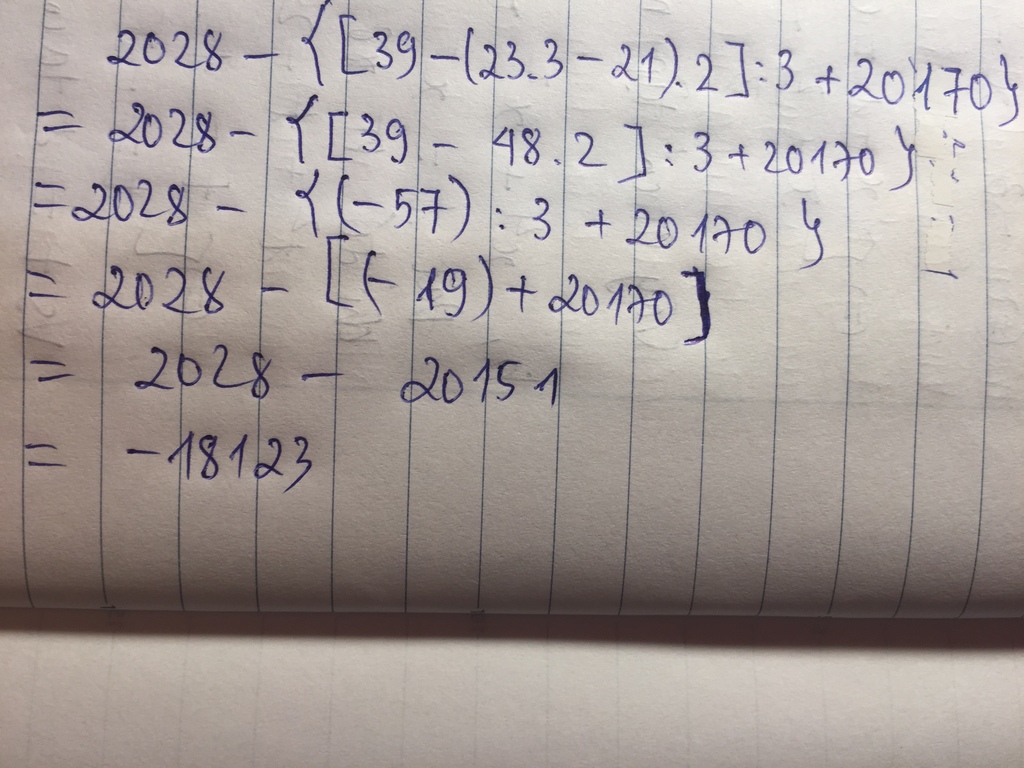 2028 - {[39 - (23.3 - 21).2]:3 + 20170}
= 2028 - {[39 - 48.2]:3 + 20170}
= 2028 - {(-57):3 + 20170}
= 2028 - [(-19) + 20170]
= 2028 - 20151
= -18123